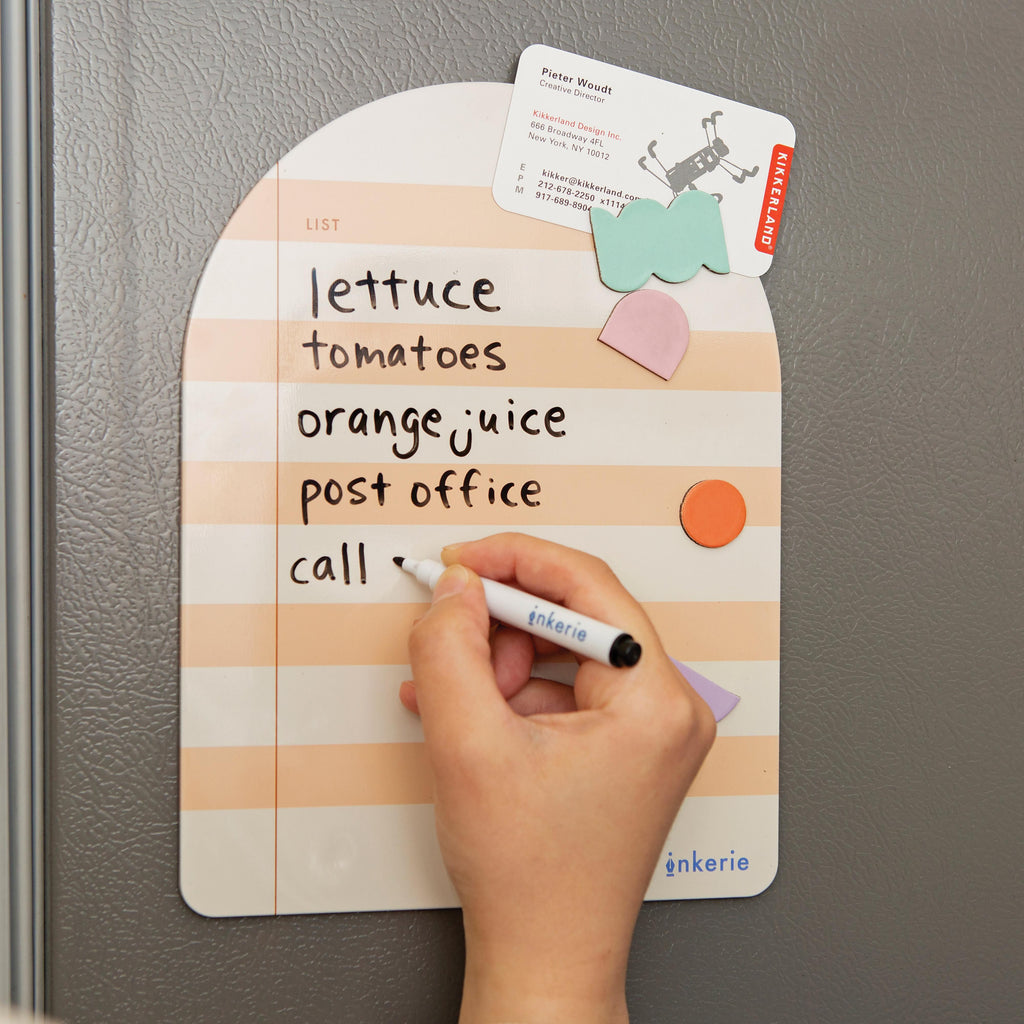 Pieter Woudt
Creative Director
Kikkerland Design Inc.
666 Broadway 4FL
New York, NY 10012
E kikker@kikkerland.com
P 212-678-2250 x1114
M 917-689-8904
KIKKERLAND®
LIST
lettuce
tomatoes
orange juice
post office
call
inkerie
inkerie